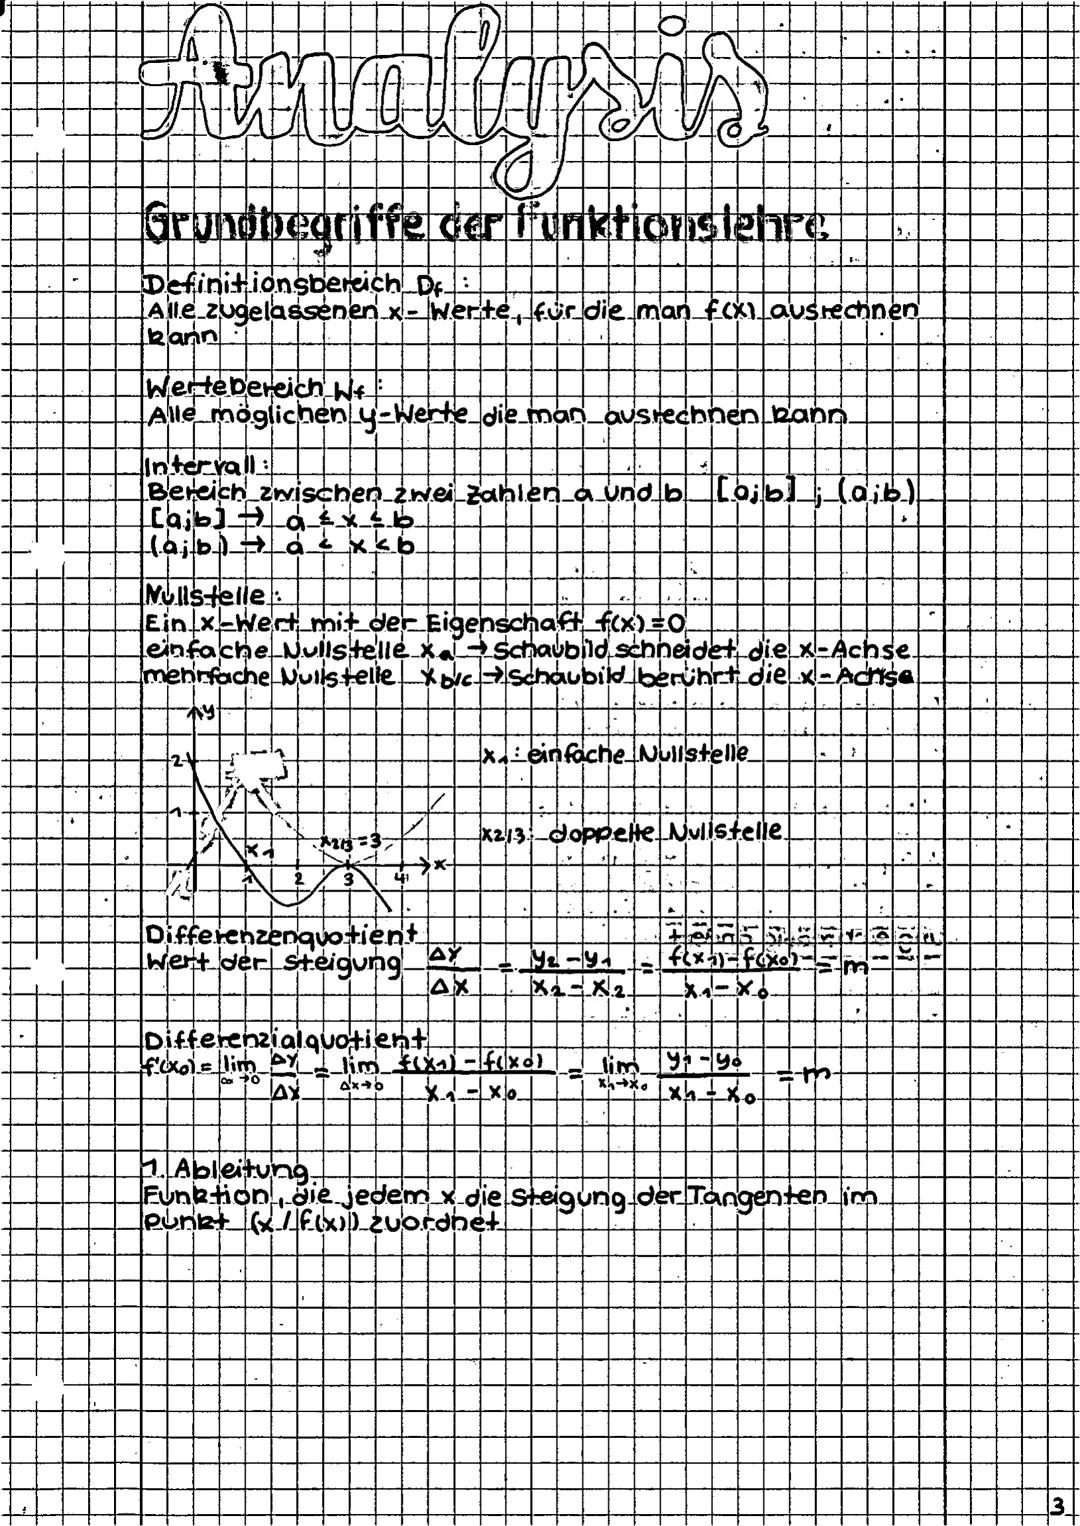 Analysis
Grundbegriffe der Funktionslehre
Definitionsbereich Df :
Alle zugelassenen x- Werte, für die man f(x) ausrechnen
kann
Wertebereich Wf :
Alle möglichen y-Werte die man ausrechnen kann
Intervall :
Bereich zwischen zwei Zahlen a und b [a;b] ; (a;b)
[a;b] → a ≤ x ≤ b
(a;b) → a < x < b
Nullstelle :
Ein x-Wert mit der Eigenschaft f(x)=0
einfache Nullstelle xa → Schaubild schneidet die x-Achse
mehrfache Nullstelle xb/c → Schaubild berührt die x-Achse
y
2
x1: einfache Nullstelle
1
x2/3: doppelte Nullstelle
x1 x2/3=3
x
1 2 3 4
Differenzenquotient
Wert der Steigung Δy/Δx = y2-y1/x2-x2 = f(x1)-f(x0)/x1-x0 = m
Differenzialquotient
f'(x0) = lim Δy/Δx = lim Δx→0 f(x1)-f(x0)/x1-x0 = lim x1→x0 y1-y0/x1-x0 = m
1. Ableitung
Funktion, die jedem x die Steigung der Tangenten im
Punkt (x/f(x)) zuordnet
3